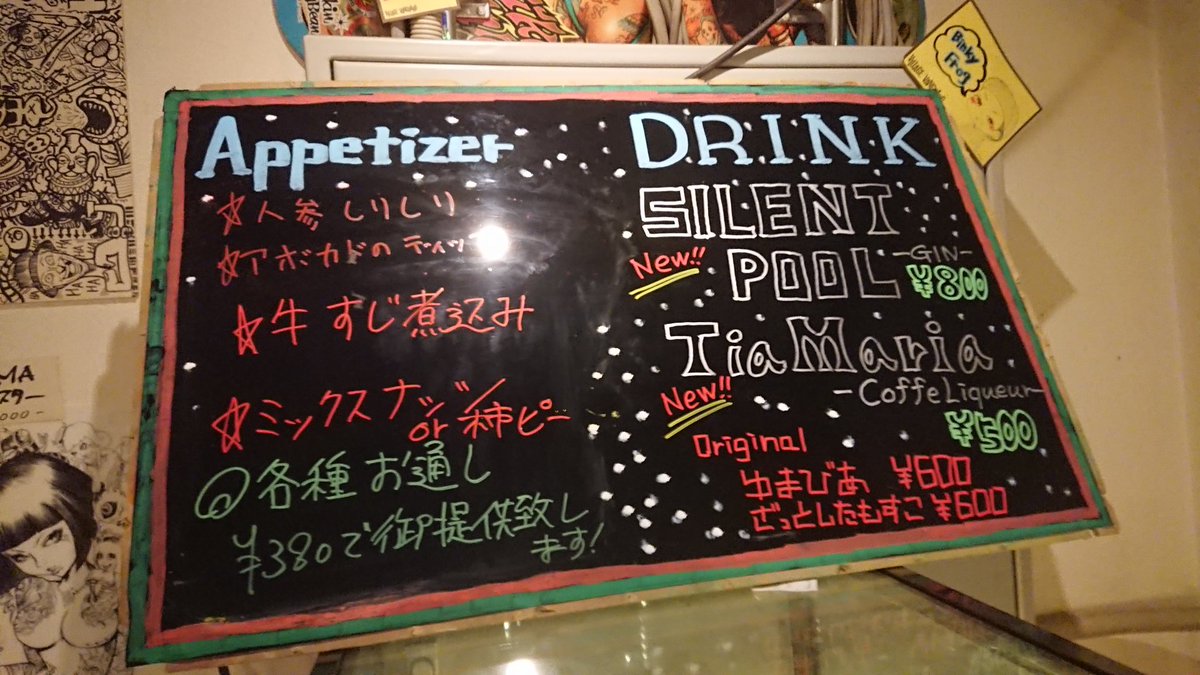 Appetizer
☆人参しりしり
☆アボカドのディップ
☆牛すじ煮込み
☆ミックスナッツ/
or 柿ピー
@各種お通し
¥380で御提供致し
ます!
DRINK
SILENT
New!!
POOL
-GIN-
¥800
Tia Maria
New!!
-Coffe Liqueur-
¥500
Original
ゆまびあ ¥600
ざっとしたもすこ ¥600
Binky
Frog
MA
スター
000-